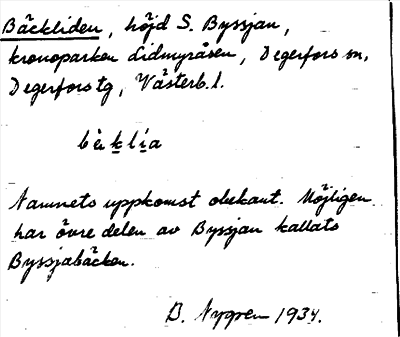 Bäckliden, höjd S. Byssjan,
kronoparken Lidmyråsen, Degerfors sn,
Degerfors tg, Västerb. l.
bèklía
Namnets uppkomst obekant. Möjligen
har övre delen av Byssjan kallats
Byssjabäcken.
B. Nygren 1934.